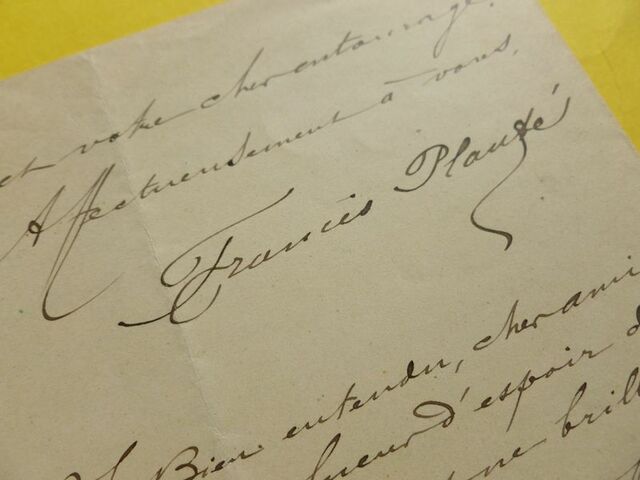 et votre cher entourage.
Affectueusement à vous,
Francis Planté
Bien entendu, cher ami
lueur d'espoir d
ne brill